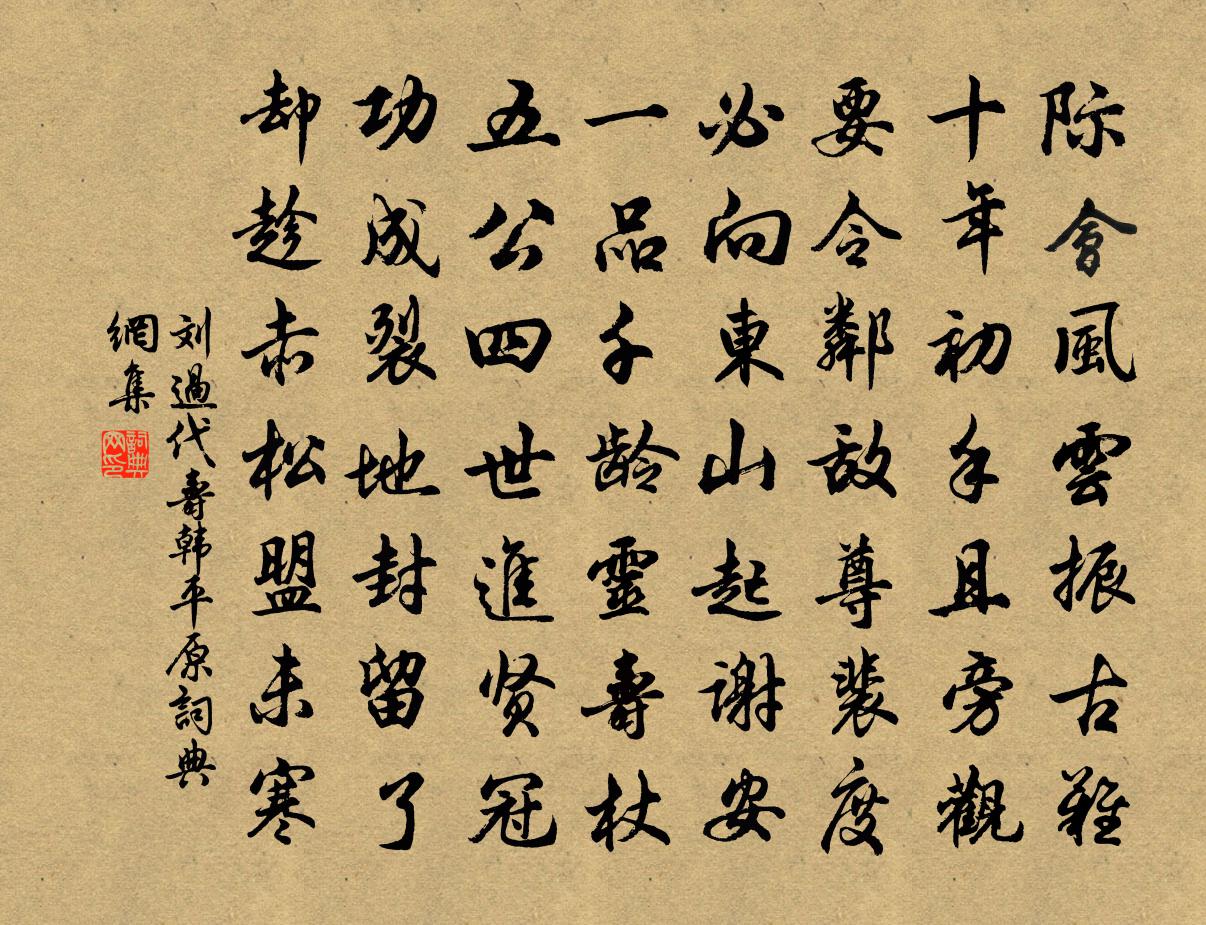 际會風雲振古難
十年初手且旁觀
要令鄰敌尊裴度
必向東山起謝安
一品千齡靈壽杖
五公四世進贤冠
功成裂地封留了
却趁赤松盟未寒
刘過代壽韩平原詞典
網集
詞典
网印